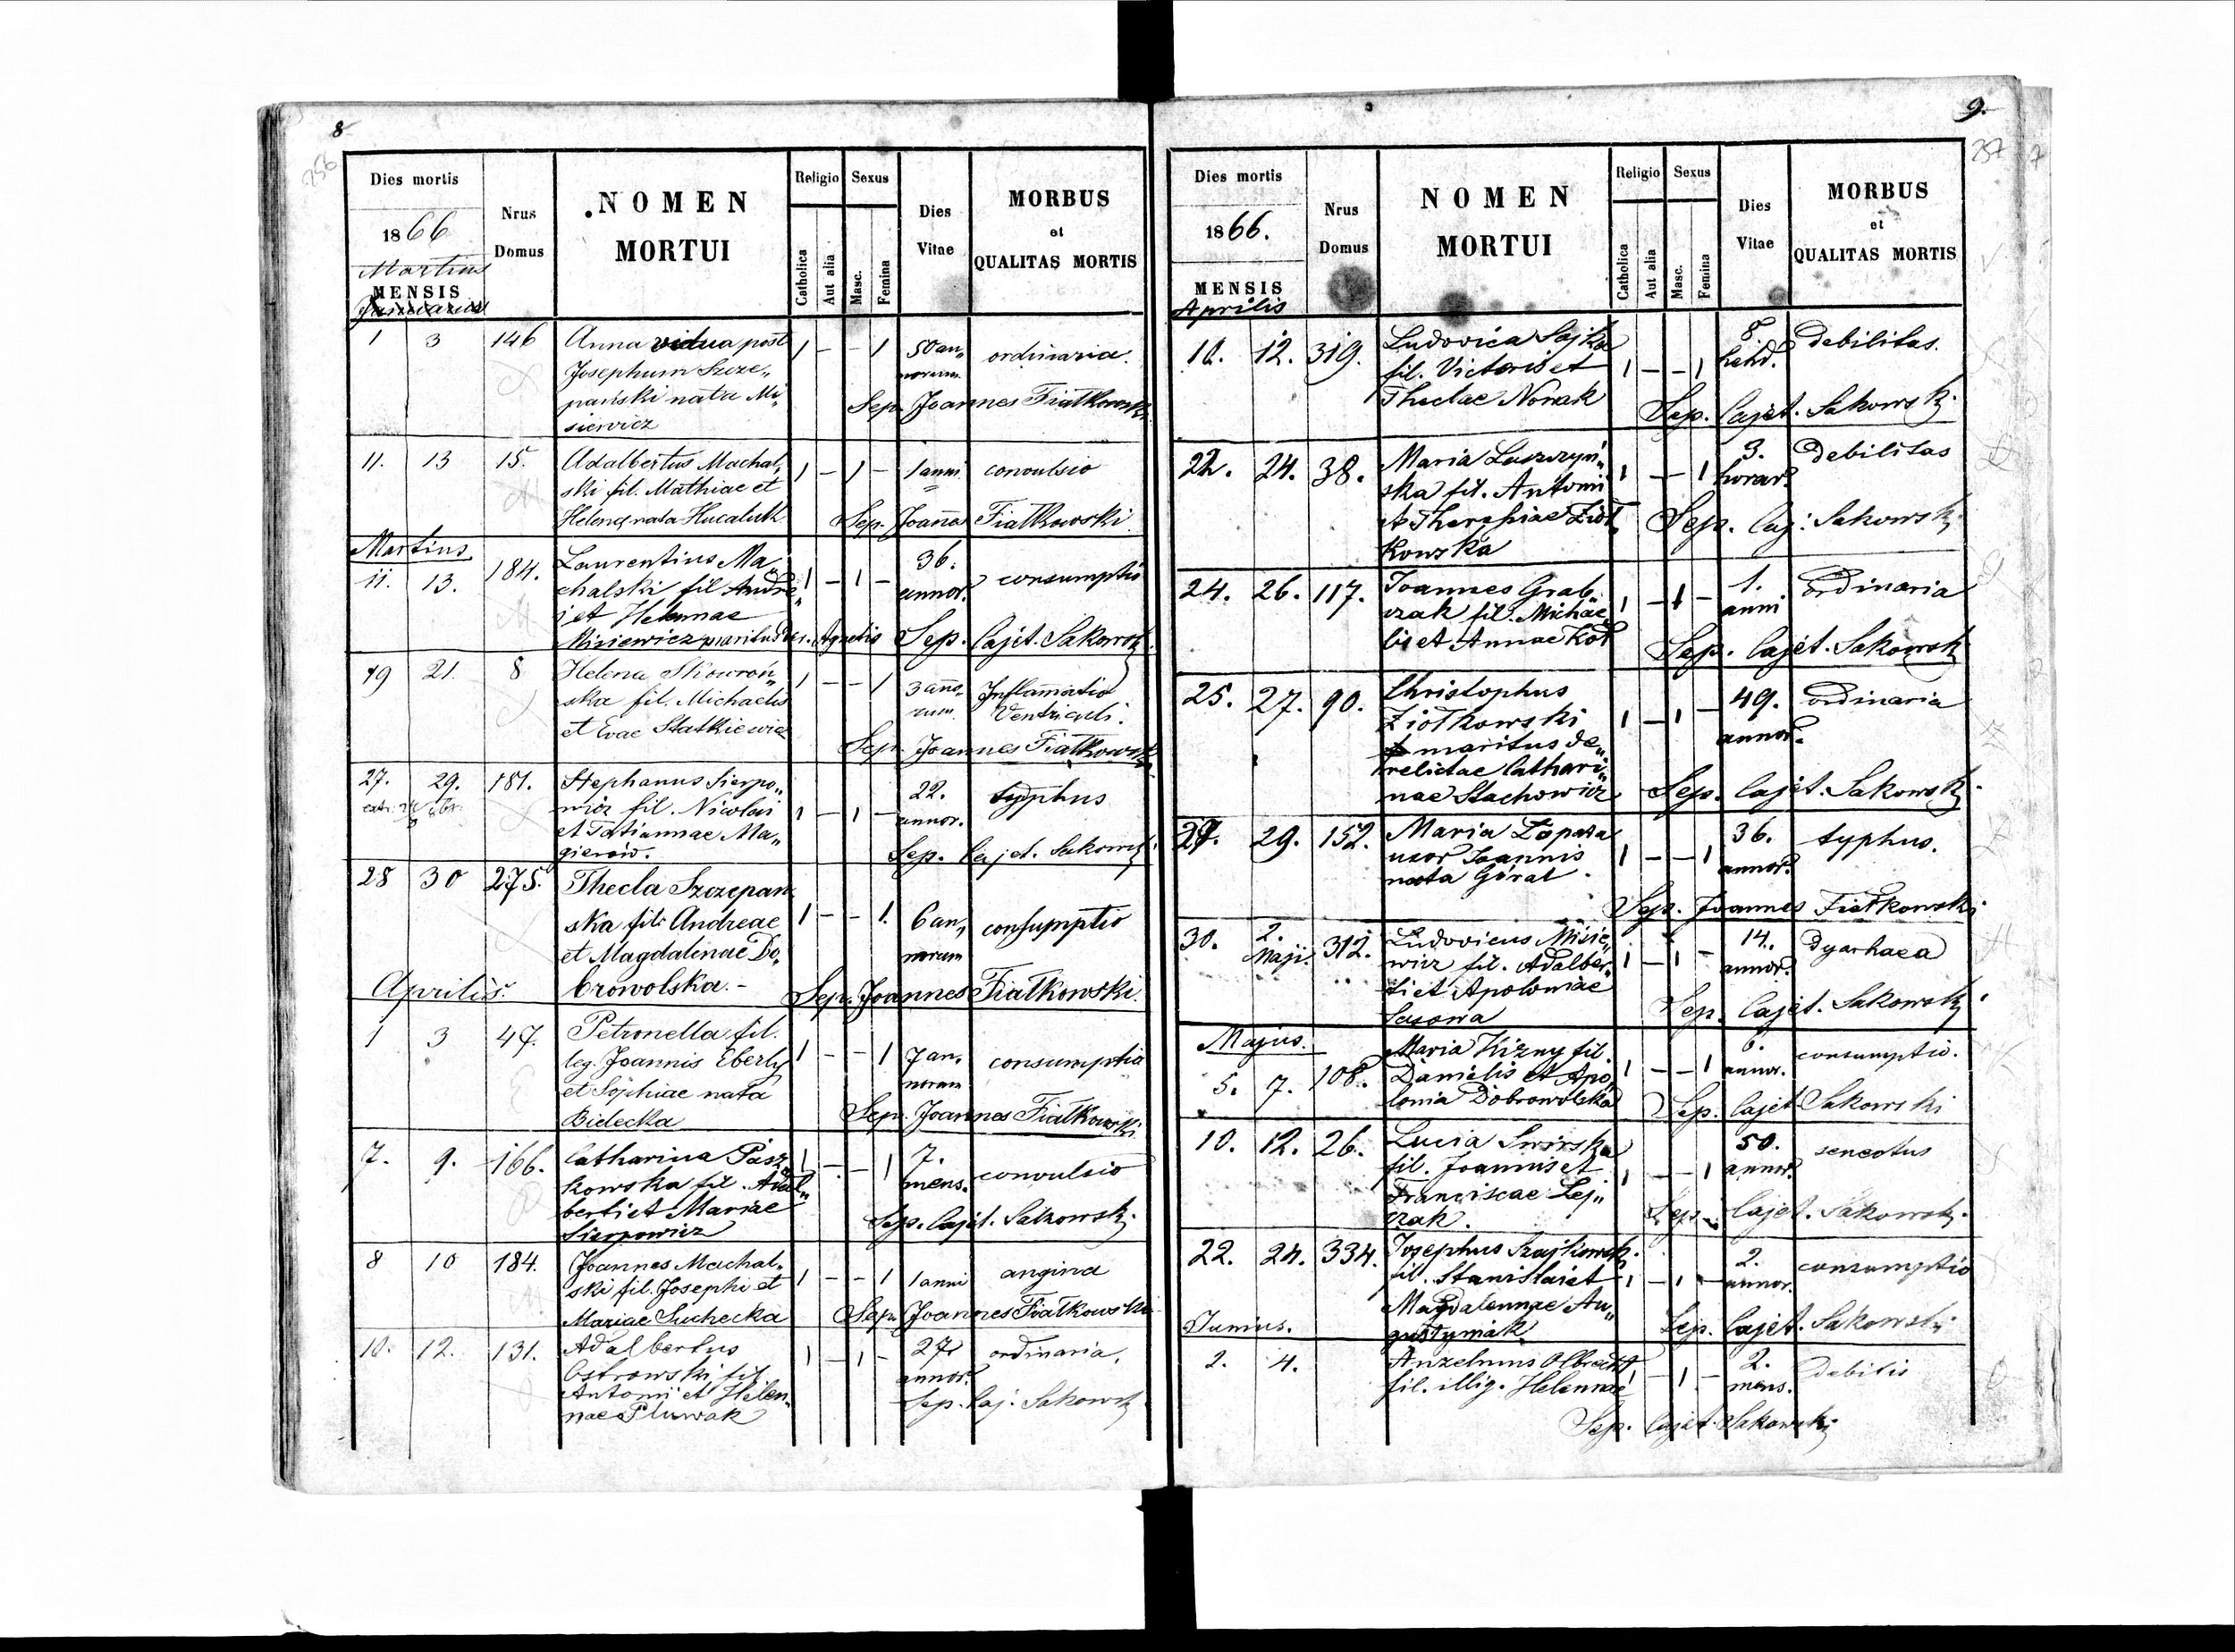 8
256
Dies mortis
1866
Martius
MENSIS
Januarius
Nrus
Domus
NOMEN
MORTUI
Religio
Catholica
Aut alia
Sexus
Masc.
Femina
Dies
Vitae
MORBUS
et
QUALITAS MORTIS
1 3 146 Anna vidua post 1 – – 1 50 an„ ordinaria
Josephum Szcze„ norum
pański nata Mi„ Sep. Joannes Fiałkowski
siewicz
11. 13 15. Adalbertus Machal„ 1 – 1 – 1 anni convulsio
ski fil. Mathiae et
Helena nata Hucaluk Sep. Joannes Fiałkowski
Martius
11. 13. 184. Laurentius Ma„ 1 – 1 – 36. consumptio
chalski fil Andre„ annor.
j et Helennae
Misiewicz maritus der. Agnetis Sep. Cajet. Sakowski
19 21. 8 Helena Skowroń„ 1 – – 1 3 anno„ Inflamatio
ska fil. Michaelis rum Ventriculi.
et Evae Statkiewicz
Sep. Joannes Fiałkowski
27. 29. 181. Stephanus Sierpo„ 1 – 1 – 22. typhus
wicz fil. Nicolai annor.
et Tatiannae Ma„
gierów. Sep. Cajet. Sakowski
28 30 275. Thecla Szczepań
ska fil. Andreae 1 – – 1. 6 an„ consumptio
et Magdalenae Do„ norum
browolska. – Sep. Joannes Fiałkowski
Aprilis.
1 3 47. Petronella fil.
leg. Joannis Eberly 1 – – 1 7 an„ consumptio
et Sophiae nata norum
Bidecka Sep. Joannes Fiałkowski
7. 9. 166. Catharina Pasz„ 1 – – 1 7. convulsio
kowska fil. Adal„ mens.
berti et Mariae
Sierpowicz Sep. Cajet. Sakowski
8 10 184. Joannes Machal„ 1 – – 1 1 anni angina
ski fil. Josephi et
Mariae Suchecka Sep. Joannes Fiałkowski
10. 12. 131. Adalbertus 1 – 1 – 27. ordinaria.
Ostrowski fil. annor.
Antonii et Helen„ Sep. Caj. Sakowski
nae Pluwak
9.
257
7
Dies mortis
1866.
MENSIS
Aprilis
Nrus
Domus
NOMEN
MORTUI
Religio
Catholica
Aut alia
Sexus
Masc.
Femina
Dies
Vitae
MORBUS
et
QUALITAS MORTIS
10. 12. 319. Ludovica Sajka 1 – – 1 8 Debilitas.
fil. Victoris et hebd.
Theclae Nowak Sep. Cajet. Sakowski
22. 24. 38. Maria Laszczyń„ 1 – – 1 3. Debilitas
ska fil. Antonii horar.
et Theresiae Ziół„ Sep. Caj: Sakowski
kowska
24. 26. 117. Joannes Grab„ 1 – 1 – 1. ordinaria
czak fil. Michae„ anni
lis et Annae Kot Sep. Cajet. Sakowski
25. 27. 90. Christophus 1 – 1 – 49. ordinaria
Ziołkowski annor.
maritus de„
relictae Cathari„
nae Stachowicz Sep. Cajet. Sakowski
27. 29. 152. Maria Łopata 1 – – 1 36. typhus.
uxor Joannis annor.
nata Góral.
Sep. Joannes Fiałkowski
30. 2. Maji. 312. Ludovicus Misie„ 1 – 1 – 14. Dyarhaea
wicz fil. Adalber„ annor.
ti et Apoloniae
Sasowa Sep. Cajet. Sakowski
Majus.
5. 7. 108. Maria Kizny fil. 1 – – 1 6. consumptio.
Danielis et Apo„ annor.
lonia Dobrowolska Sep. Cajet Sakowski
10. 12. 26. Lucia Swirska 1 – – 1 50. senectus
fil. Joannis et annor.
Franciscae Lej„
czak. Sep. Cajet. Sakowski
22. 24. 334. Josephus Szajkowski 1 – 1 – 2. consumptio
fil. Stanislai et annor.
Magdalennae Au„
gustyniak Sep. Cajet. Sakowski
Junius.
2. 4. Anzelmus Olbrecht 1 – 1 – 2. Debilis
fil. illig. Helennae mens.
Sep. Cajet. Sakowski